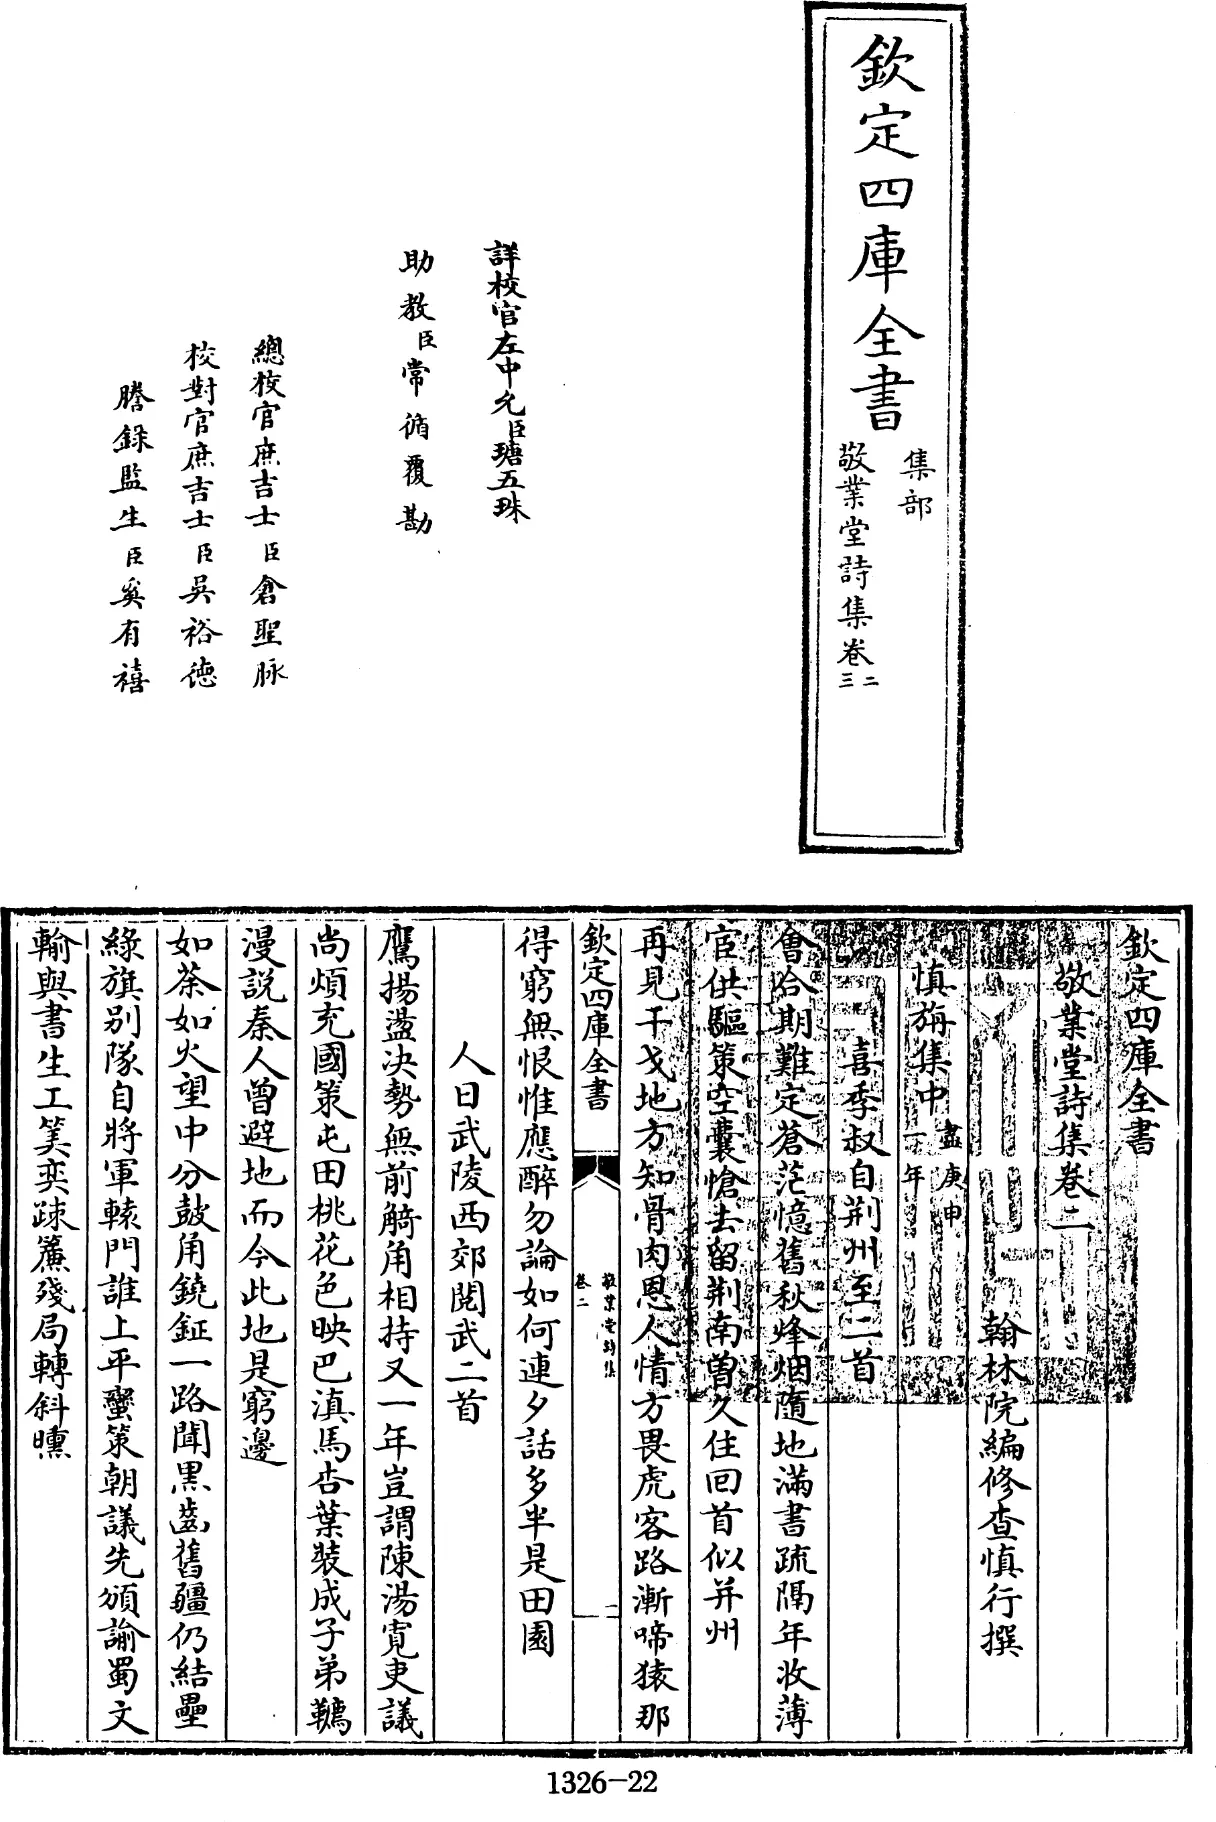 欽定四庫全書
集部
敬業堂詩集卷二三
詳校官左中允臣瑭五珠
助教臣常循覆勘
總校官庶吉士臣倉聖脉
校對官庶吉士臣吳裕徳
謄錄監生臣奚有禧
欽定四庫全書
敬業堂詩集卷二
翰林院編修查慎行撰
慎旃集中盡庚申一年
喜季叔自荆州至二首
會合期難定蒼茫憶舊秋烽烟隨地滿書疏隔年收薄
宦供驅策空囊愴去留荆南曾久住回首似并州
再見干戈地方知骨肉恩人情方畏虎客路漸啼猿那
欽定四庫全書
敬業堂詩集
卷二
一
得窮無恨惟應醉勿論如何連夕話多半是田園
人日武陵西郊閱武二首
鷹揚盪决勢無前觭角相持又一年豈謂陳湯寛吏議
尚煩充國策屯田桃花色映巴滇馬杏葉裝成子弟韉
漫說秦人曾避地而今此地是窮邊
如荼如火望中分鼓角鐃鉦一路聞黒齒舊疆仍結壘
綠旗别隊自將軍轅門誰上平蠻策朝議先頒諭蜀文
輸與書生工筭奕疎簾殘局轉斜曛
1326-22